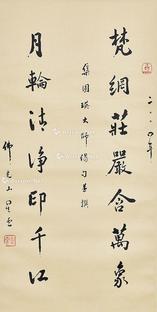 二〇〇四年
梵網莊嚴含萬象
集圓瑛大師偈句并撰
月輪法淨印千江
佛光山星雲